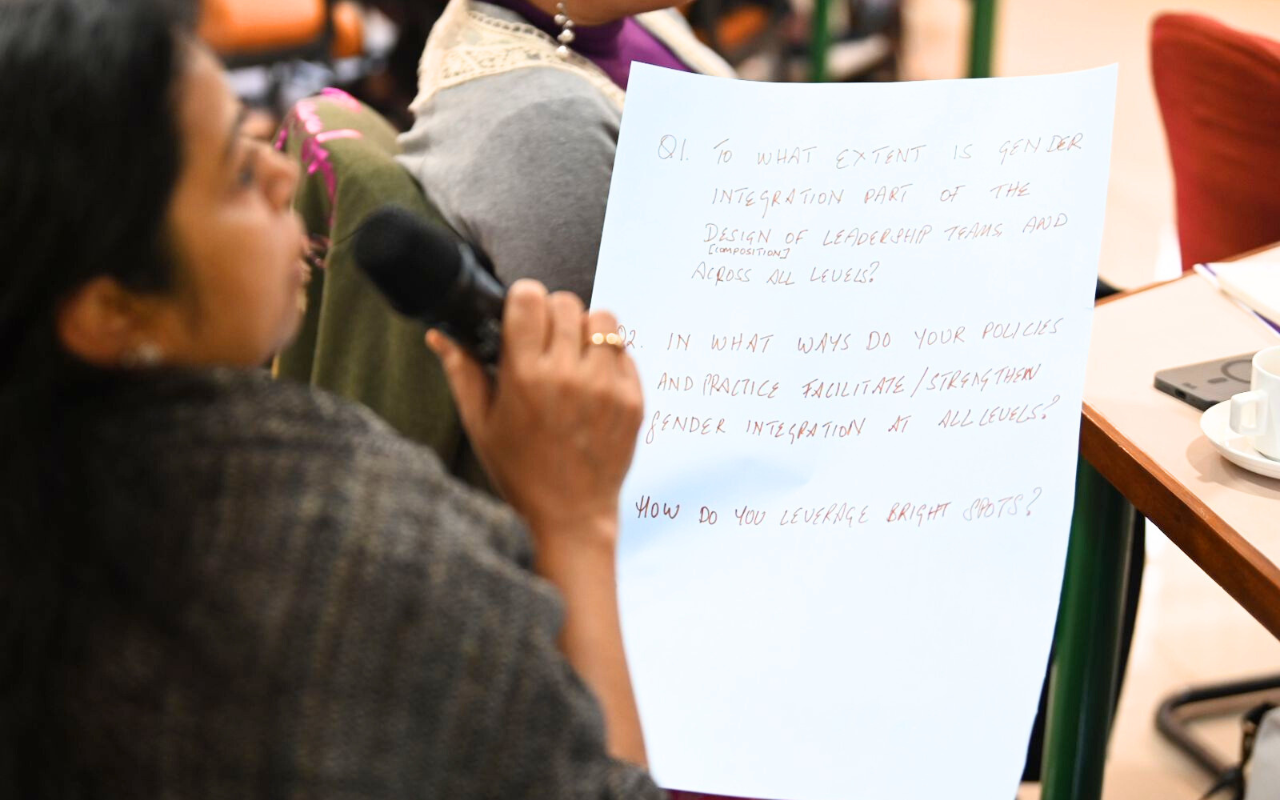 Q1. TO WHAT EXTENT IS GENDER
INTEGRATION PART OF THE
DESIGN OF LEADERSHIP TEAMS AND
[COMPOSITION]
ACROSS ALL LEVELS?
Q2. IN WHAT WAYS DO YOUR POLICIES
AND PRACTICE FACILITATE/STRENGTHEN
GENDER INTEGRATION AT ALL LEVELS?
HOW DO YOU LEVERAGE BRIGHT SPOTS?